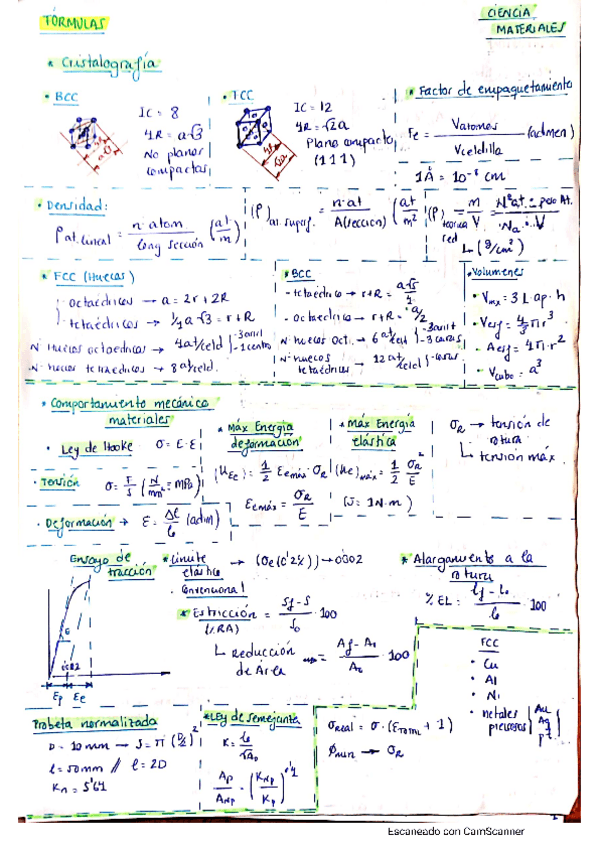 FÓRMULAS
CIENCIA
MATERIALES
* Cristalografía
• BCC
IC = 8
4R = a√3
No planos
compactos
• FCC
IC = 12
4R = √2a
Plano compacto
(111)
* Factor de empaquetamiento
Fe = Vatomos / Vceldilla (admen)
1Å = 10⁻⁸ cm
• Densidad:
ρat. lineal = n·atom / long sección (at/m)
(ρ)at. superf. = n·at / A(sección) (at/m²)
(ρ)teorica red = m/V = Nºat · peso At. / Na · V
↳ (g/cm³)
* FCC (Huecos)
· octaédricos → a = 2r + 2R
· tetraédricos → 1/4 a√3 = r + R
Nº huecos octaedricos → 4at/celd
Nº huecos tetraédricos → 8at/celd.
* BCC
- tetaédrico → r+R =
- octaedrico → r+R = a/2
Nº huecos oct. → 6at/celd
Nº huecos
tetaédricos → 12at/celd
• Volumenes
• Vhex = 3L·ap·h
• Vesf = 4/3πr³
• Aesf = 4π·r²
• Vcubo = a³
* Comportamiento mecánico
materiales
• Ley de Hooke σ = E·ε
• Tensión σ = F/S (N/mm² = MPa)
• Deformación → ε = Δl/l₀ (adim)
* Máx Energía
deformación
= 1/2 εemáx · σR
εemáx = σR/E
* Máx Energía
elástica
(Ue)máx = 1/2 σR²/E
(J = 1N·m)
σR → tensión de
rotura
↳ tensión máx.
Ensayo de
tracción
0'002
εp εe
* Límite
elástico
convencional
→ (σe(0'2%)) → 0'002
* Estricción = Sf-S / S₀ · 100
(%RA)
↳ Reducción
de Área = Af-A₀ / A₀ · 100
* Alargamiento a la
rotura
%EL: lf-l₀ / l₀ · 100
FCC
• Cu
• Al
• Ni
• metales
preciosos
Au
Ag
Pt
Probeta normalizada
D = 10mm → S = π(D/2)²
l = 50mm // l = 2D
Kn = 5'64
* Ley de semejanza
K = l₀/√A₀
σReal = σ·(εTOTAL + 1)
Φmin → σR
1
Escaneado con CamScanner